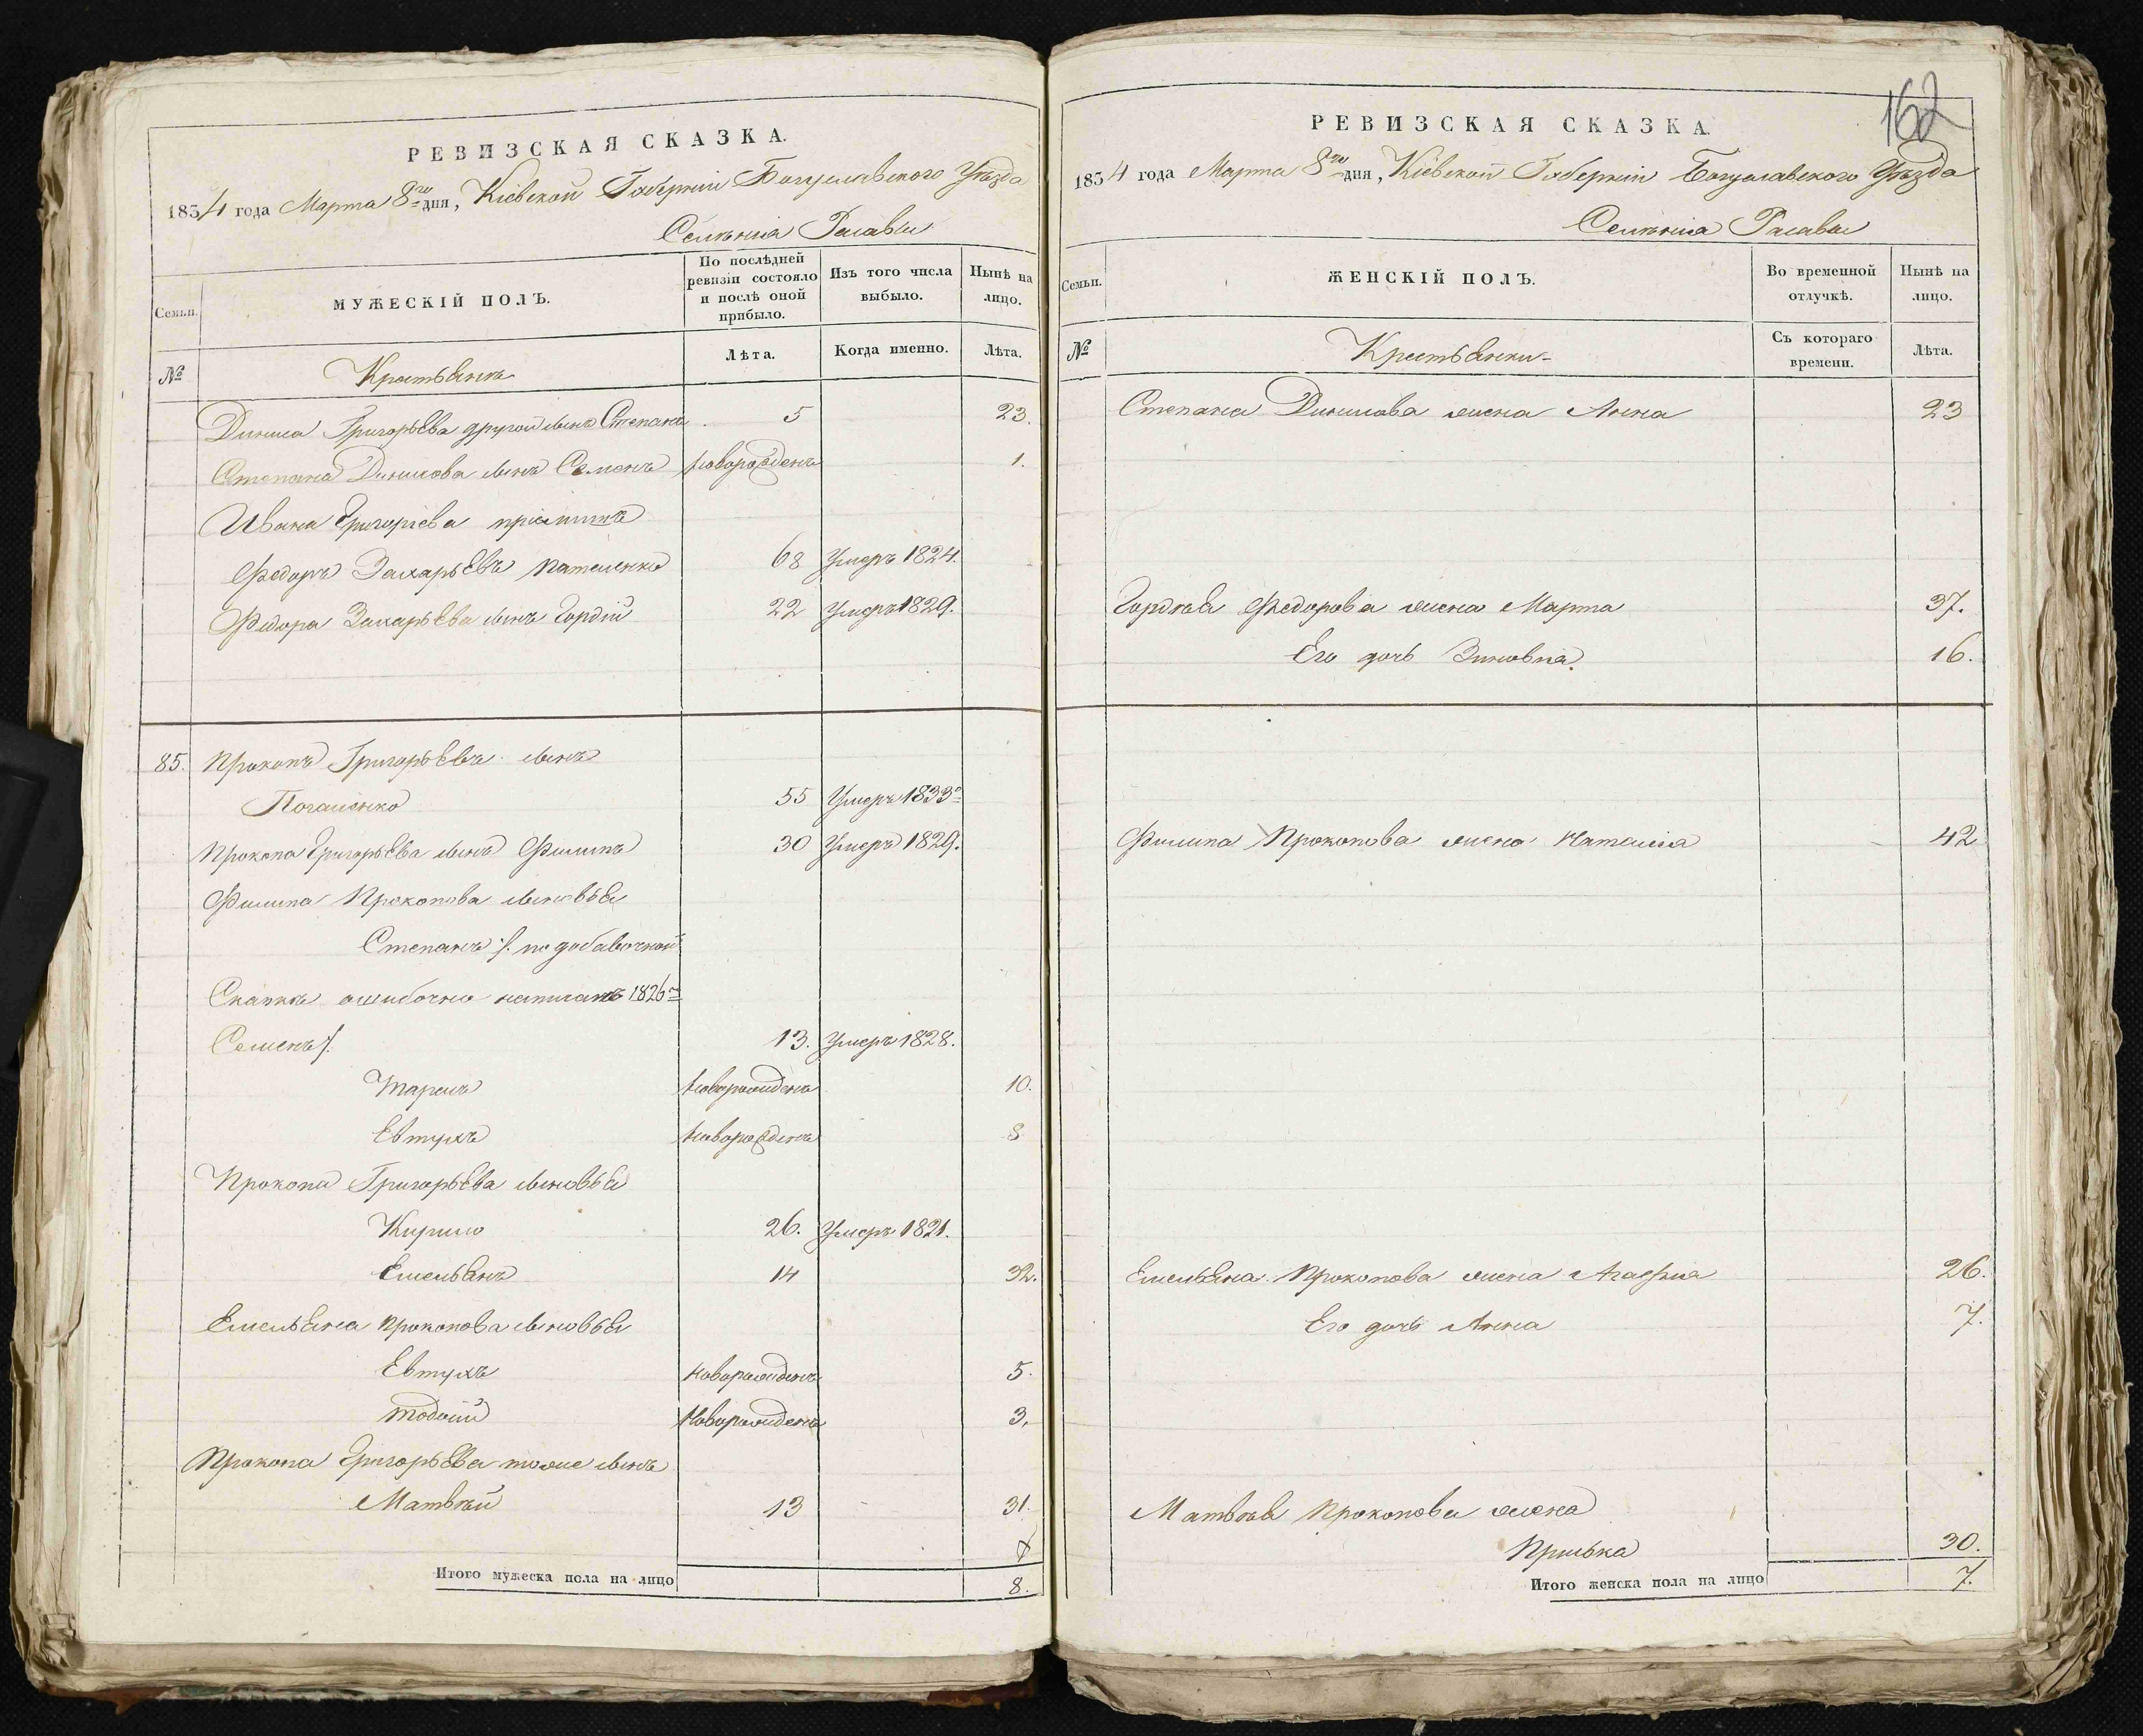 РЕВИЗСКАЯ СКАЗКА.
1834 года Марта 8го дня, Кіевской Губерніи Богуславскаго Уѣзда
Селенія Расавы
Семьи.
МУЖЕСКІЙ ПОЛЪ.
По послѣдней ревизіи состояло и послѣ оной прибыло.
Изъ того числа выбыло.
Нынѣ на лицо.
№
Крестьяне
Лѣта.
Когда именно.
Лѣта.
Дениса Григорьева другой сынъ Степанъ 5 23.
Степана Денисова сынъ Семенъ новорожденъ 1.
Ивана Григоріева пріемышъ
Федоръ Захарьевъ 68 Умеръ 1824.
Федора Захарьева сынъ Гордій 22 Умеръ 1829.
85. Прокопъ Григорьевъ сынъ
55 Умеръ 1833го
Прокопа Григорьева сынъ Филипъ 30 Умеръ 1829.
Филипа Прокопова сыновья
Степанъ /: по добавочной
Сказкѣ ошибочно написанъ 1826го
Семенъ /: 13. Умеръ 1828.
Тарасъ Новорожденъ 10.
Евтухъ Новорожденъ 8
Прокопа Григорьева сыновья
Кирило 26. Умеръ 1821.
Емельянъ 14 32.
Емельяна Прокопова сыновья
Евтухъ новорожденъ 5.
Тодосій Новорожденъ 3.
Прокопа Григорьева тоже сынъ
Матвѣй 13 31.
Итого мужеска пола на лицо 8.
162
РЕВИЗСКАЯ СКАЗКА.
1834 года Марта 8го дня, Кіевской Губерніи Богуславскаго Уѣзда
Селенія Расавы
Семьи.
ЖЕНСКІЙ ПОЛЪ.
Во временной отлучкѣ.
Нынѣ на лицо.
№
Крестьянки
Съ котораго времени.
Лѣта.
Степана Денисова жена Анна 23
Гордѣя Федорова жена Марта 37.
Его дочь Зиновія. 16.
Филипа Прокопова жена Наталія 42
Емельяна Прокопова жена Агафія 26.
Его дочь Анна 7.
Матвѣя Прокопова жена
Приська 30.
Итого женска пола на лицо 7.